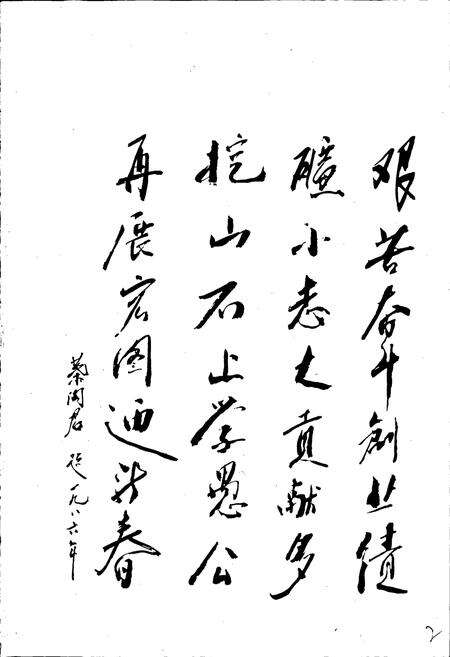 艰苦奋斗创业绩
矿小志大贡献多
挖山石上学愚公
再展宏图迎新春
蔡闵君 一九八六年
2